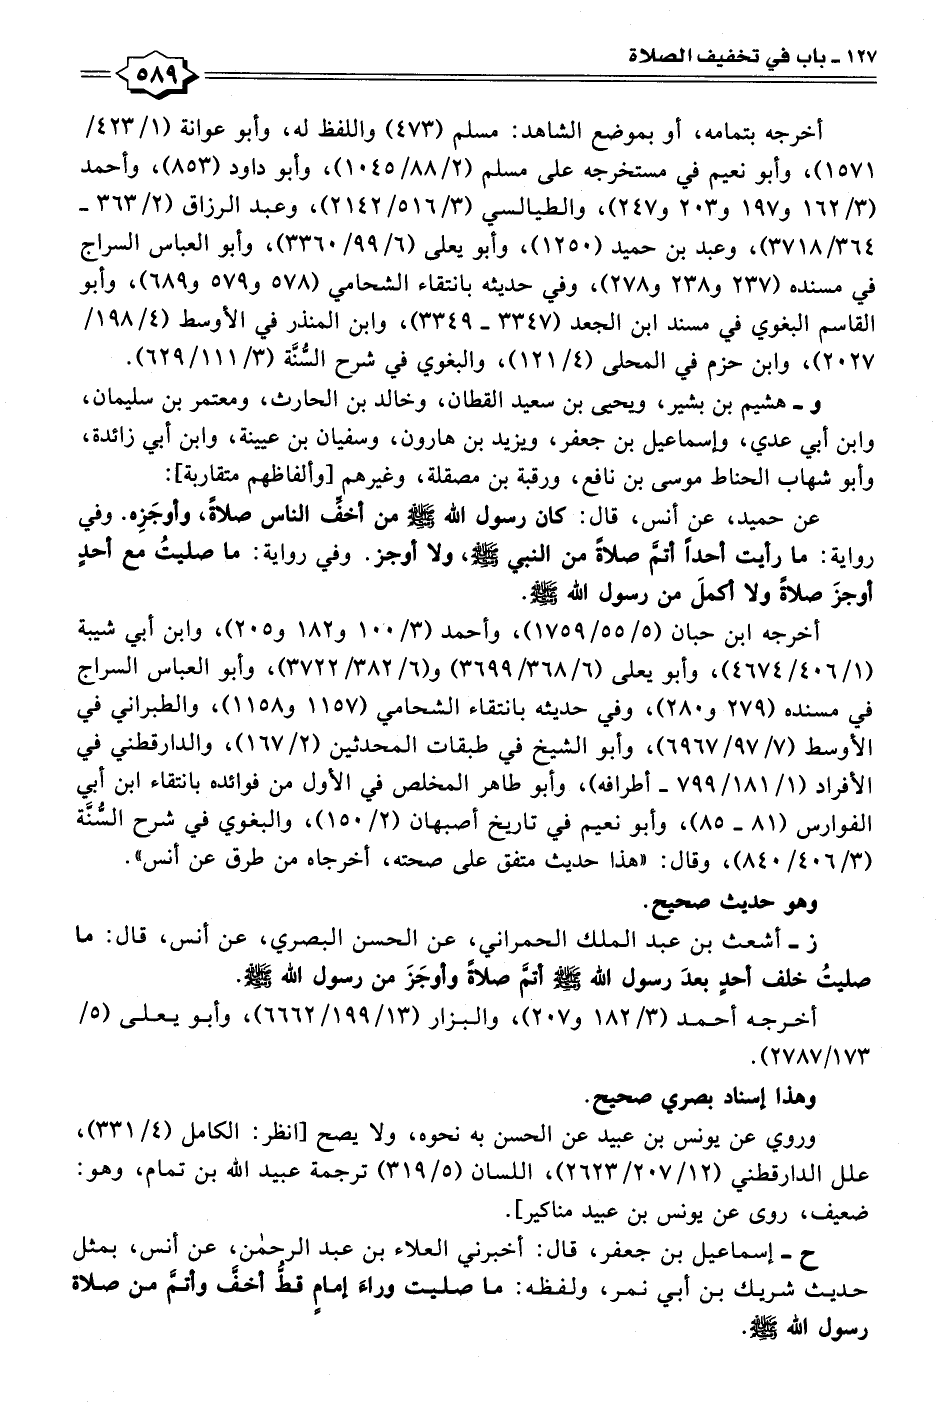 ١٢٧ ـ باب في تخفيف الصلاة
٥٨٩
أخرجه بتمامه، أو بموضع الشاهد: مسلم (٤٧٣) واللفظ له، وأبو عوانة (١/ ٤٢٣/
١٥٧١)، وأبو نعيم في مستخرجه على مسلم (٢/ ٨٨/ ١٠٤٥)، وأبو داود (٨٥٣)، وأحمد
(٣/ ١٦٢ و١٩٧ و٢٠٣ و٢٤٧)، والطيالسي (٣/ ٥١٦/ ٢١٤٢)، وعبد الرزاق (٢/ ٣٦٣ ـ
٣٦٤/ ٣٧١٨)، وعبد بن حميد (١٢٥٠)، وأبو يعلى (٦/ ٩٩/ ٣٣٦٠)، وأبو العباس السراج
في مسنده (٢٣٧ و٢٣٨ و٢٧٨)، وفي حديثه بانتقاء الشحامي (٥٧٨ و٥٧٩ و٦٨٩)، وأبو
القاسم البغوي في مسند ابن الجعد (٣٣٤٧ ـ ٣٣٤٩)، وابن المنذر في الأوسط (٤/ ١٩٨/
٢٠٢٧)، وابن حزم في المحلى (٤/ ١٢١)، والبغوي في شرح السُّنَّة (٣/ ١١١/ ٦٢٩).
و ـ هشيم بن بشير، ويحيى بن سعيد القطان، وخالد بن الحارث، ومعتمر بن سليمان،
وابن أبي عدي، وإسماعيل بن جعفر، ويزيد بن هارون، وسفيان بن عيينة، وابن أبي زائدة،
وأبو شهاب الحناط موسى بن نافع، ورقبة بن مصقلة، وغيرهم [وألفاظهم متقاربة]:
عن حميد، عن أنس، قال: كان رسول الله ﷺ من أخفِّ الناس صلاةً، وأوجَزِه. وفي
رواية: ما رأيت أحداً أتمَّ صلاةً من النبي ﷺ، ولا أوجز. وفي رواية: ما صليتُ مع أحدٍ
أوجزَ صلاةً ولا أكملَ من رسول الله ﷺ.
أخرجه ابن حبان (٥/ ٥٥/ ١٧٥٩)، وأحمد (٣/ ١٠٠ و١٨٢ و٢٠٥)، وابن أبي شيبة
(١/ ٤٠٦/ ٤٦٧٤)، وأبو يعلى (٦/ ٣٦٨/ ٣٦٩٩) و(٦/ ٣٨٢/ ٣٧٢٢)، وأبو العباس السراج
في مسنده (٢٧٩ و٢٨٠)، وفي حديثه بانتقاء الشحامي (١١٥٧ و١١٥٨)، والطبراني في
الأوسط (٧/ ٩٧/ ٦٩٦٧)، وأبو الشيخ في طبقات المحدثين (٢/ ١٦٧)، والدارقطني في
الأفراد (١/ ١٨١/ ٧٩٩ ـ أطرافه)، وأبو طاهر المخلص في الأول من فوائده بانتقاء ابن أبي
الفوارس (٨١ ـ ٨٥)، وأبو نعيم في تاريخ أصبهان (٢/ ١٥٠)، والبغوي في شرح السُّنَّة
(٣/ ٤٠٦/ ٨٤٠)، وقال: «هذا حديث متفق على صحته، أخرجاه من طرق عن أنس».
وهو حديث صحيح.
ز ـ أشعث بن عبد الملك الحمراني، عن الحسن البصري، عن أنس، قال: ما
صليتُ خلف أحدٍ بعدَ رسول الله ﷺ أتمَّ صلاةً وأوجَزَ من رسول الله ﷺ.
أخرجه أحمد (٣/ ١٨٢ و٢٠٧)، والبزار (١٣/ ١٩٩/ ٦٦٦٢)، وأبو يعلى (٥/
١٧٣/ ٢٧٨٧).
وهذا إسناد بصري صحيح.
وروي عن يونس بن عبيد عن الحسن به نحوه، ولا يصح [انظر: الكامل (٤/ ٣٣١)،
علل الدارقطني (١٢/ ٢٠٧/ ٢٦٢٣)، اللسان (٥/ ٣١٩) ترجمة عبيد الله بن تمام، وهو:
ضعيف، روى عن يونس بن عبيد مناكير].
ح ـ إسماعيل بن جعفر، قال: أخبرني العلاء بن عبد الرحمٰن، عن أنس، بمثل
حديث شريك بن أبي نمر، ولفظه: ما صليت وراءَ إمامٍ قطُّ أخفَّ وأتمَّ من صلاة
رسول الله ﷺ.